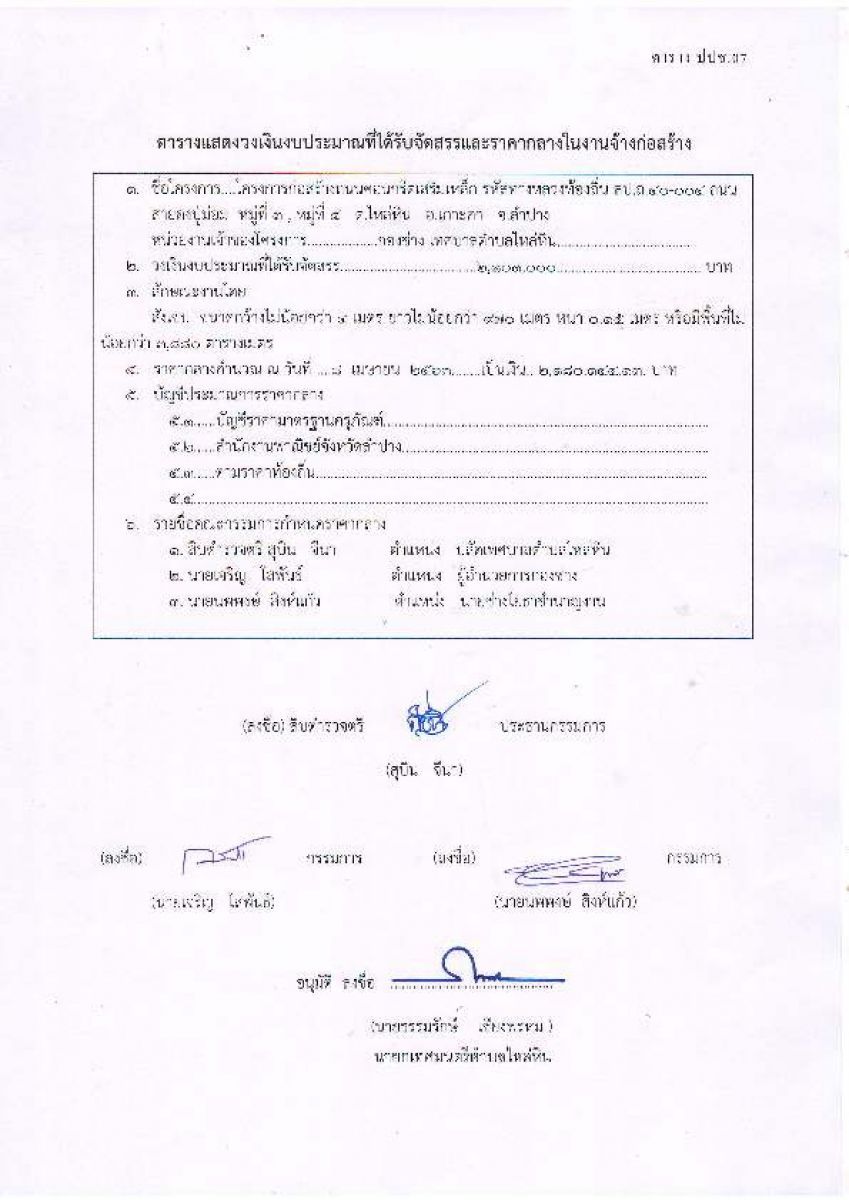 ตาราง ปปช.07
ตารางแสดงวงเงินงบประมาณที่ได้รับจัดสรรและราคากลางในงานจ้างก่อสร้าง
๑. ชื่อโครงการ....โครงการก่อสร้างถนนคอนกรีตเสริมเหล็ก รหัสทางหลวงท้องถิ่น ลป.ถ ๔๐-๐๐๔ ถนน
สายดงปู่ม่อน หมู่ที่ ๓ , หมู่ที่ ๕ ต.ไหล่หิน อ.เกาะคา จ.ลำปาง
หน่วยงานเจ้าของโครงการ..................กองช่าง เทศบาลตำบลไหล่หิน..................................
๒. วงเงินงบประมาณที่ได้รับจัดสรร...................................๒,๑๐๓,๐๐๐..................................... บาท
๓. ลักษณะงานโดย
สังเขป ขนาดกว้างไม่น้อยกว่า ๔ เมตร ยาวไม่น้อยกว่า ๙๗๐ เมตร หนา ๐.๑๕ เมตร หรือมีพื้นที่ไม่
น้อยกว่า ๓,๘๘๐ ตารางเมตร
๔. ราคากลางคำนวณ ณ วันที่ ....๘ เมษายน ๒๕๖๓.......เป็นเงิน.. ๒,๑๘๐,๑๔๔.๑๓. บาท
๕. บัญชีประมาณการราคากลาง
๕.๑.....บัญชีราคามาตรฐานครุภัณฑ์..................
๕.๒.....สำนักงานพาณิชย์จังหวัดลำปาง..................
๕.๓.....ตามราคาท้องถิ่น..................
๕.๔..................
๖. รายชื่อคณะกรรมการกำหนดราคากลาง
๑. สิบตำรวจตรี สุบิน จีนา ตำแหน่ง ปลัดเทศบาลตำบลไหล่หิน
๒. นายเจริญ โสพันธ์ ตำแหน่ง ผู้อำนวยการกองช่าง
๓. นายนพพงษ์ สิงห์แก้ว ตำแหน่ง นายช่างโยธาชำนาญงาน
(ลงชื่อ) สิบตำรวจตรี ประธานกรรมการ
(สุบิน จีนา)
(ลงชื่อ) กรรมการ (ลงชื่อ) กรรมการ
(นายเจริญ โสพันธ์) (นายนพพงษ์ สิงห์แก้ว)
อนุมัติ ลงชื่อ ..................
(นายธรรมรักษ์ เทียงพรหม)
นายกเทศมนตรีตำบลไหล่หิน